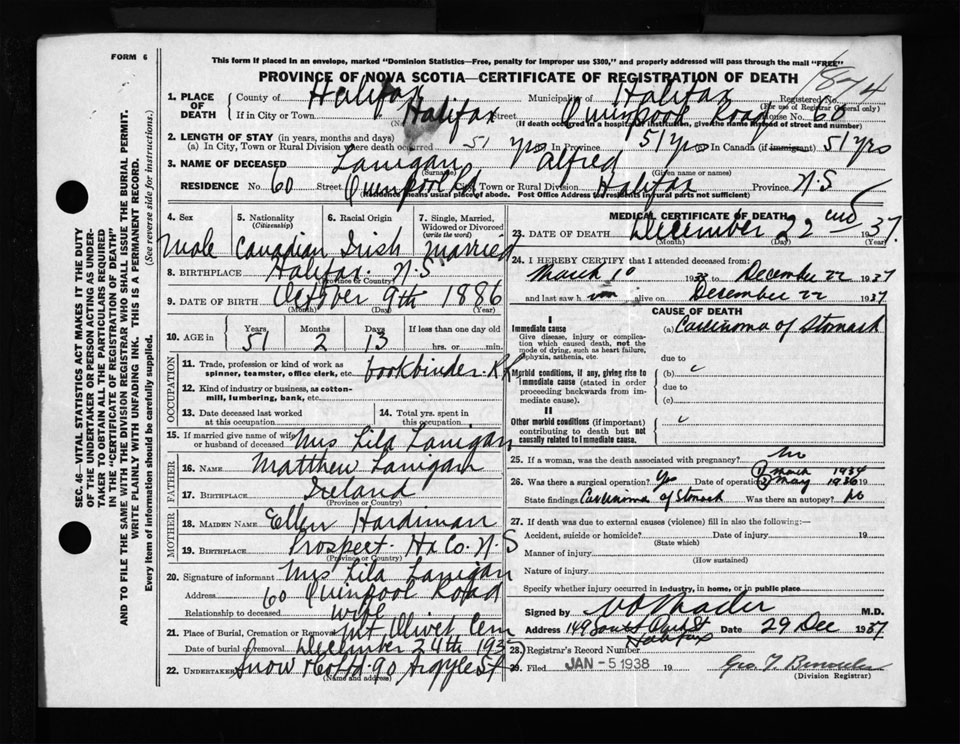 FORM 6
This form if placed in an envelope, marked "Dominion Statistics—Free, penalty for improper use $300," and properly addressed will pass through the mail "FREE"
PROVINCE OF NOVA SCOTIA—CERTIFICATE OF REGISTRATION OF DEATH
1874
1. PLACE OF DEATH
County of Halifax Municipality of Halifax Registered No.
(For use of Registrar General only)
If in City or Town Halifax Street Quinpool Road House No. 60
(If death occurred in a hospital or institution, give the name instead of street and number)
2. LENGTH OF STAY (in years, months and days)
(a) In City, Town or Rural Division where death occurred 51 yrs (b) In Province 51 yrs (c) In Canada (if immigrant) 51 yrs
3. NAME OF DECEASED Lanigan Alfred
(Surname) (Given name or names)
RESIDENCE No. 60 Street Quinpool Rd City, Town or Rural Division Halifax Province N.S
(Residence means usual place of abode. Post Office Address for residents in rural parts not sufficient)
4. Sex
Male
5. Nationality (Citizenship)
Canadian
6. Racial Origin
Irish
7. Single, Married, Widowed or Divorced (write the word)
Married
8. BIRTHPLACE Halifax. N.S
(Province or Country)
9. DATE OF BIRTH October 9th 1886
(Month) (Day) (Year)
10. AGE in
Years Months Days If less than one day old
51 2 13 hrs. or min.
OCCUPATION
11. Trade, profession or kind of work as spinner, teamster, office clerk, etc. bookbinder
12. Kind of industry or business, as cotton-mill, lumbering, bank, etc.
13. Date deceased last worked at this occupation
14. Total yrs. spent in this occupation
15. If married give name of wife or husband of deceased Mrs Lila Lanigan
FATHER
16. NAME Matthew Lanigan
17. BIRTHPLACE Ireland
(Province or Country)
MOTHER
18. MAIDEN NAME Ellen Hardiman
19. BIRTHPLACE Prospect. Hx Co. N.S
(Province or Country)
20. Signature of informant Mrs Lila Lanigan
Address 60 Quinpool Road
Relationship to deceased wife
21. Place of Burial, Cremation or Removal Mt Olivet Cem
Date of burial or removal December 24th 1937
22. UNDERTAKER Snow & Co Ltd. 90 Argyle St
(Name and address)
MEDICAL CERTIFICATE OF DEATH
23. DATE OF DEATH December 22nd 1937.
(Month) (Day) (Year)
24. I HEREBY CERTIFY that I attended deceased from:
March 10 193 to December 22 1937
and last saw h im alive on December 22 1937
CAUSE OF DEATH
I
Immediate cause (a) Carcinoma of Stomach
Give disease, injury or complication which caused death, not the mode of dying, such as heart failure, asphyxia, asthenia, etc.
due to
Morbid conditions, if any, giving rise to immediate cause (stated in order proceeding backwards from immediate cause).
(b)
due to
(c)
II
Other morbid conditions (if important) contributing to death but not causally related to immediate cause.
25. If a woman, was the death associated with pregnancy?
26. Was there a surgical operation? Yes Date of operation (1) March 1934 (2) May 1936 19
State findings Carcinoma of Stomach Was there an autopsy? No
27. If death was due to external causes (violence) fill in also the following:—
Accident, suicide or homicide? Date of injury 19
(State which)
Manner of injury
(How sustained)
Nature of injury
Specify whether injury occurred in industry, in home, or in public place
Signed by M.D.
Address 149 South Park St Halifax Date 29 Dec 1937
28. Registrar's Record Number
29. Filed JAN - 5 1938 19 Geo. T.
(Division Registrar)
SEC. 46—VITAL STATISTICS ACT MAKES IT THE DUTY
OF THE UNDERTAKER OR PERSON ACTING AS UNDER-
TAKER TO OBTAIN ALL THE PARTICULARS REQUIRED
IN THE "CERTIFICATE OF REGISTRATION OF DEATH"
AND TO FILE THE SAME WITH THE DIVISION REGISTRAR WHO SHALL ISSUE THE BURIAL PERMIT.
WRITE PLAINLY WITH UNFADING INK. THIS IS A PERMANENT RECORD.
Every item of information should be carefully supplied. (See reverse side for instructions.)